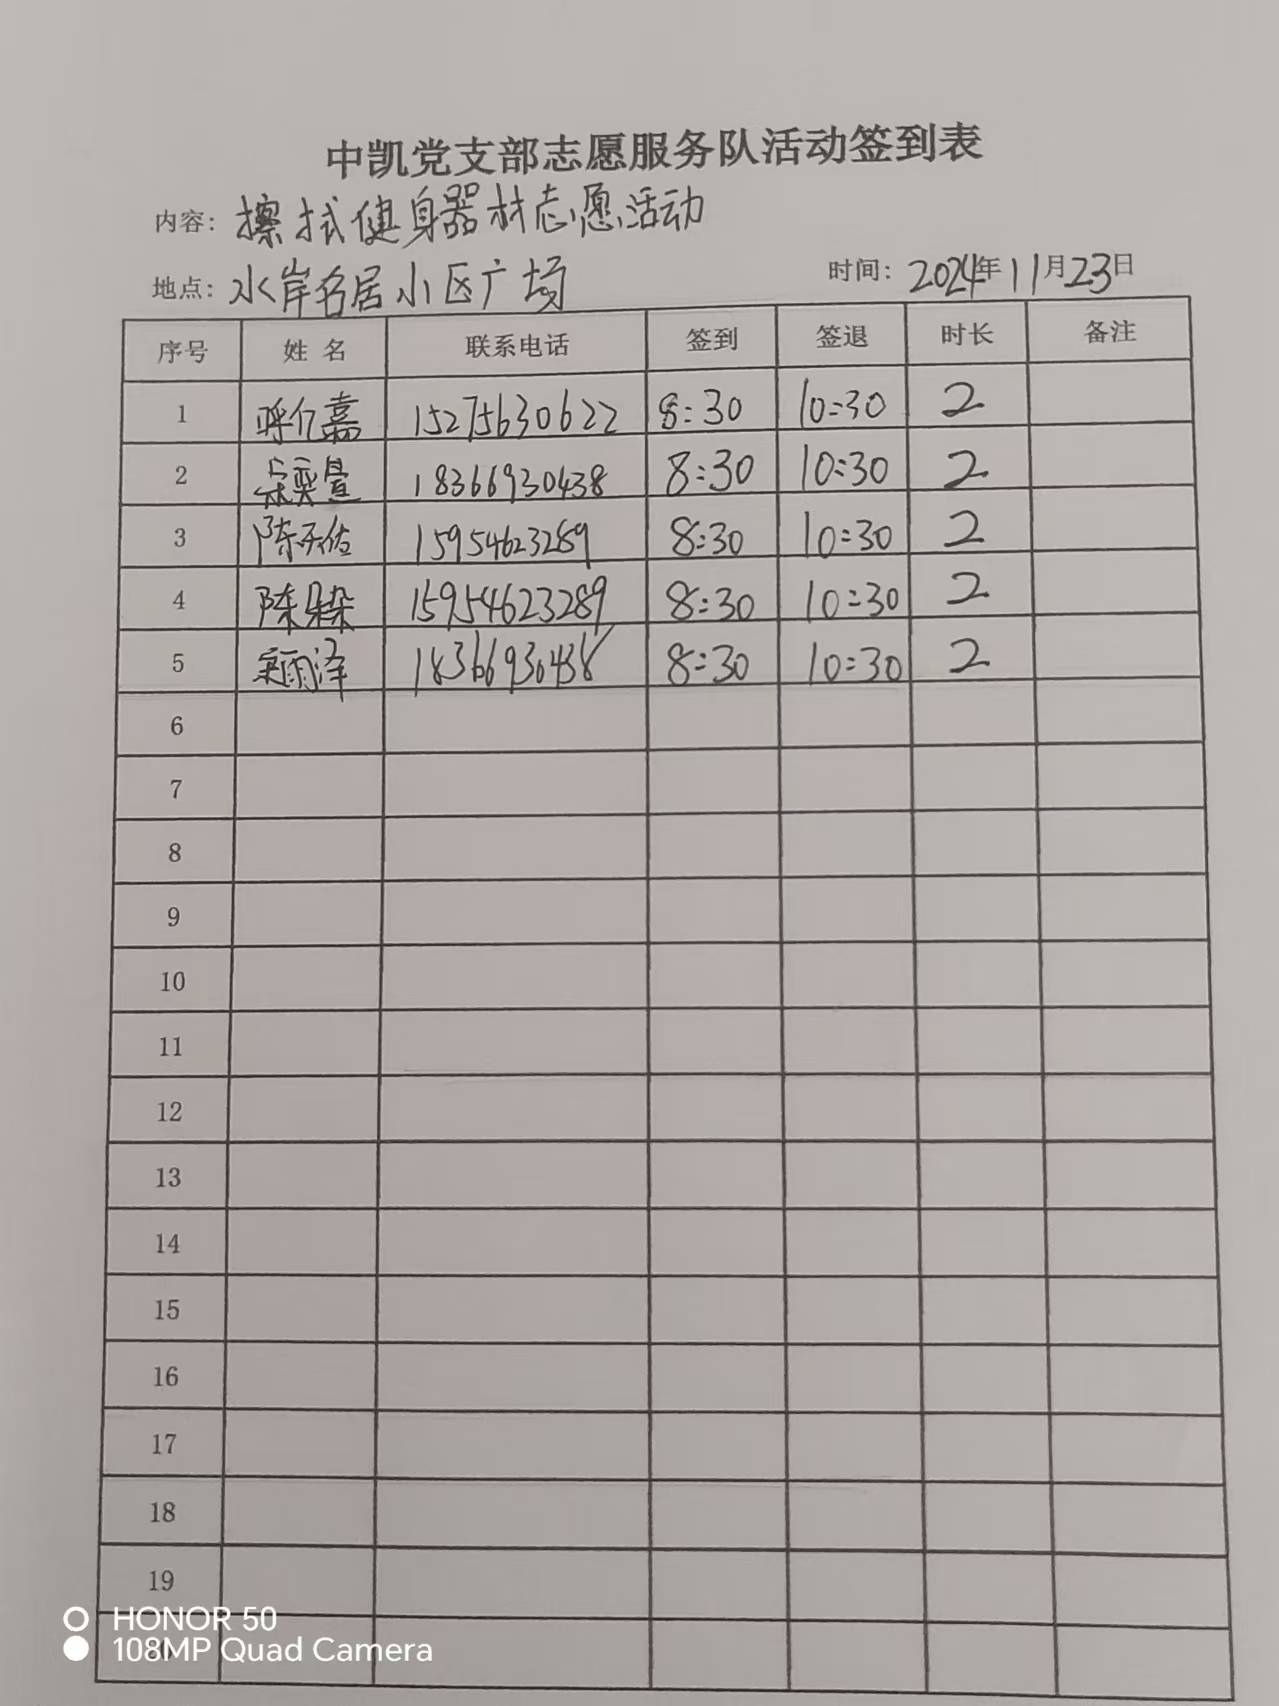 中凯党支部志愿服务队活动签到表
内容：擦拭健身器材志愿活动
地点：水岸名居小区广场 时间：2024年11月23日
序号 姓名 联系电话 签到 签退 时长 备注
1 呼亿嘉 15275630622 8:30 10:30 2
2 宋奕萱 18366930438 8:30 10:30 2
3 陈天佑 15954623289 8:30 10:30 2
4 陈朵朵 15954623289 8:30 10:30 2
5 宋雨泽 18366930438 8:30 10:30 2
6
7
8
9
10
11
12
13
14
15
16
17
18
19
HONOR 50
108MP Quad Camera